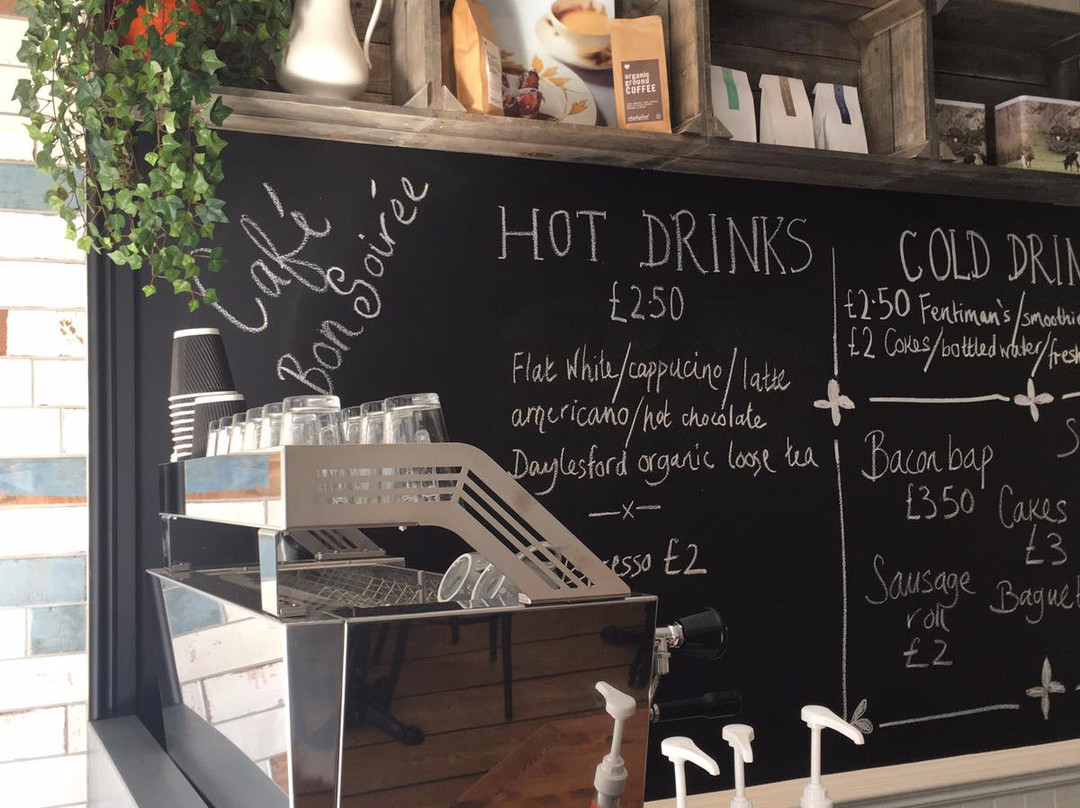 organic
ground
COFFEE
Café
Bon Soirée
HOT DRINKS
£250
Flat White/cappucino/latte
americano/hot chocolate
Daylesford organic loose tea
x
£2
COLD
£2.50 Fentiman's/
£2 Cokes/bottled water/
Bacon bap
£350
Cakes
£3
Sausage
roll
£2